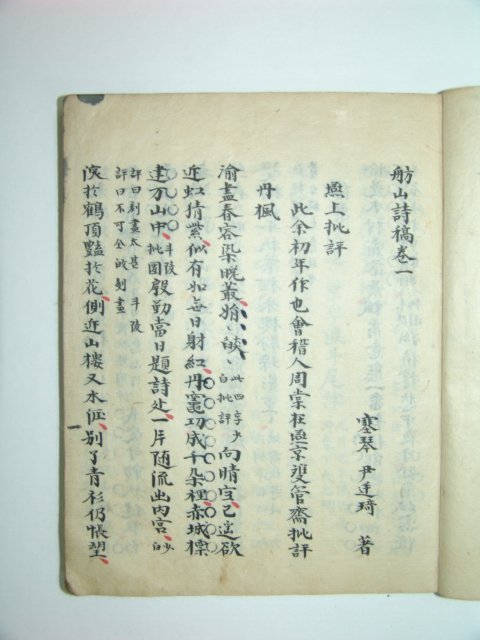 舫山詩稿卷一
蹇琴 尹廷琦 著
燕上批評
此余初年作也會稽人周棠在燕京雙管齋批評
丹楓
渝盡春容染晚叢娟、此四字少白批評向晴空已
近虹猜紫似有如每日射紅丹竈功成千朶裡赤城標
建万山中斗陵批圈殷勤當日題詩處一片随流出内宮少白
評曰刻畫太甚斗陵
評曰不可全以刻畫
深於鶴頂豔於花側近山樓又水傕別了青衫仍悵望